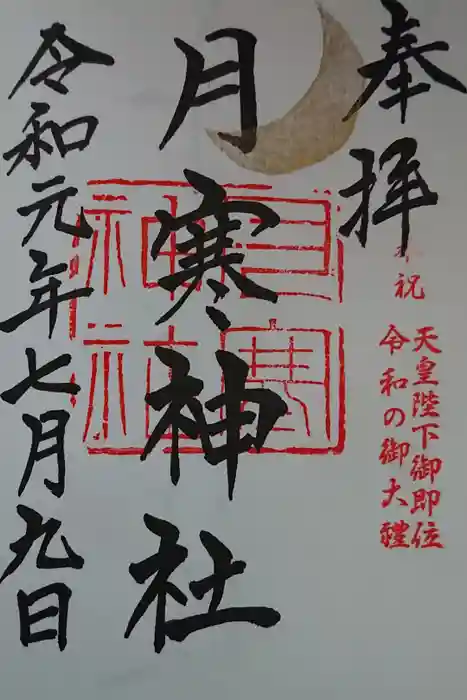 奉拝
祝
天皇陛下御即位
令和の御大禮
月寒神社
月寒神社
令和元年七月九日